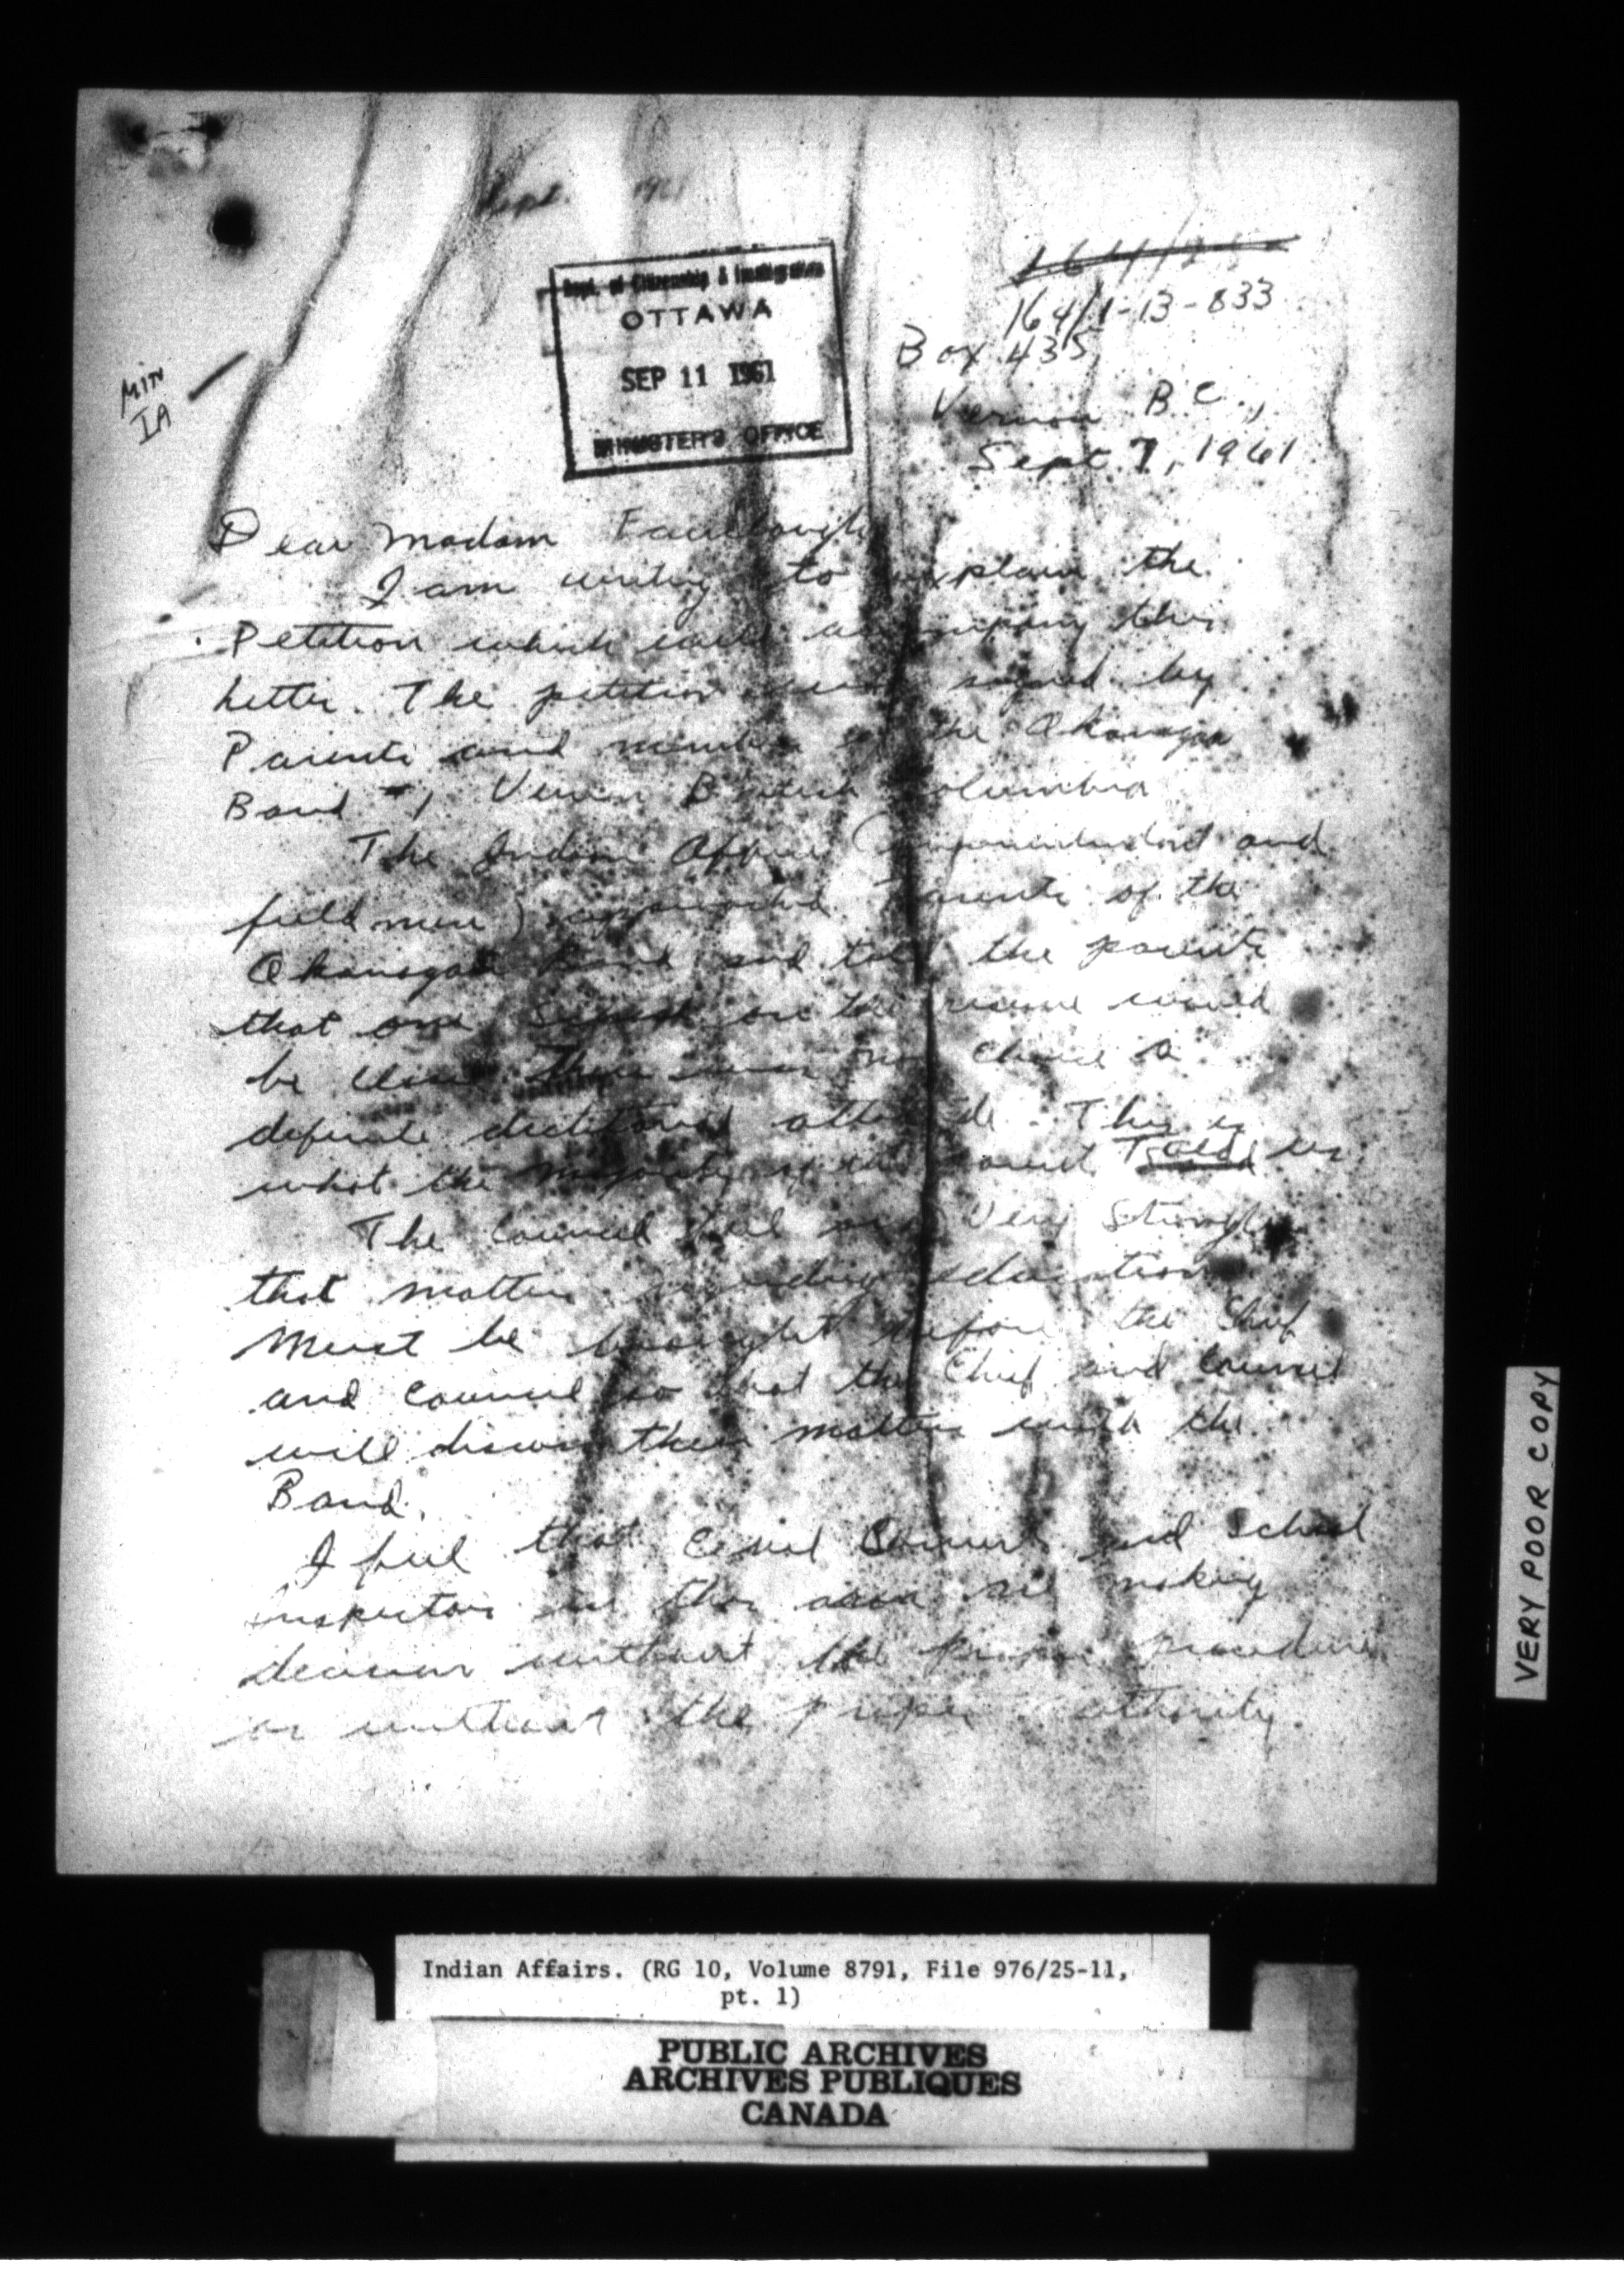 Sept. 1961
164/1-13-833
Dept. of Citizenship & Immigration
OTTAWA
SEP 11 1961
MINISTER'S OFFICE
MIN
IA
Box 435,
Vernon B.C.,
Sept 7, 1961
Dear Madam Fairclough
I am writing to explain the
Petition which will accompany this
Letter. The petition signed by
Parents and members of the Okanagan
Band #1 Vernon British Columbia
The Indian Office (Superintendent and
field men) approached Parents of the
Okanagan Band and told the parents
that one School on the reserve would
be There was no choice a
definite dictatorial attitude. This is
what the majority of the Told us
The Council feel very Strongly
that matters regarding education
Must be brought before the Chief
and Council so that the Chief and Council
will discuss these matters with the
Band.
I feel that and School
Inspectors in this area are making
decision without the proper procedure
or without the proper authority.
VERY POOR COPY
Indian Affairs. (RG 10, Volume 8791, File 976/25-11,
pt. 1)
PUBLIC ARCHIVES
ARCHIVES PUBLIQUES
CANADA